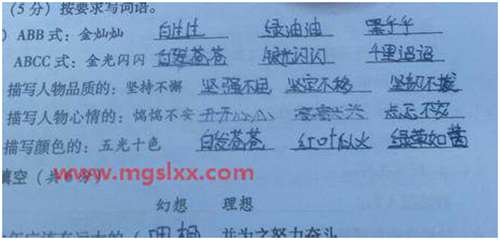 （5分）按要求写词语。
）ABB式：金灿灿 白生生 绿油油 黑乎乎
ABCC式：金光闪闪 白发苍苍 银光闪闪 千里迢迢
描写人物品质的：坚持不懈 坚强不屈 坚定不移 坚韧不拔
描写人物心情的：惴惴不安 忐忑不安
描写颜色的：五光十色 白发苍苍 红叶似火 绿草如茵
www.mgslxx.com
填空（共
幻想 理想
理想 并为之努力奋斗